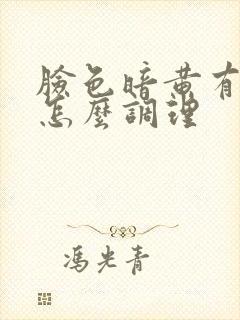 臉色暗黃有
怎麼調理
馮光青